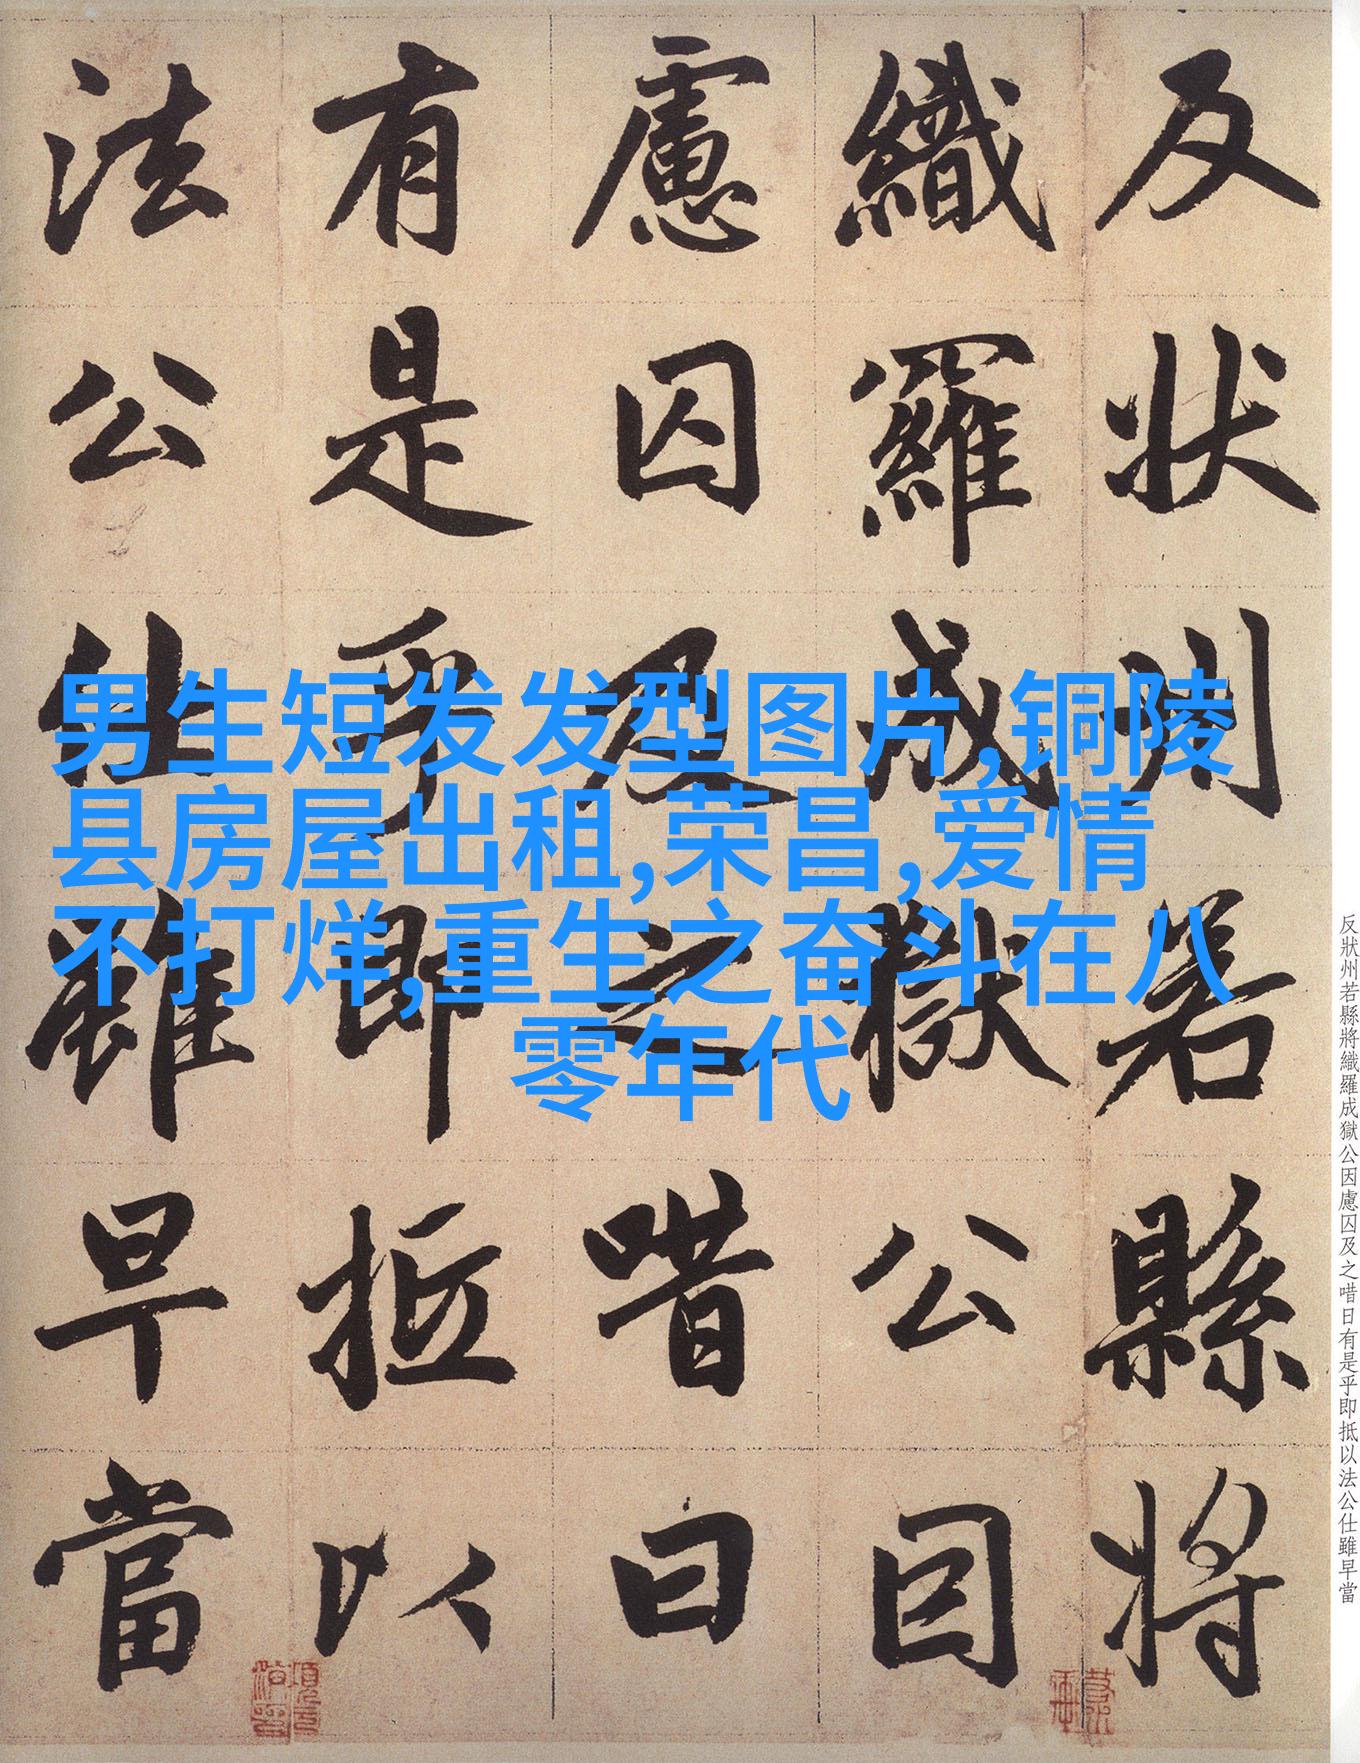 反狀州若縣將
織羅成獄公因
慮囚及之喈曰
有是乎即抵以
法公仕雖早當
男生短发发型图片,铜陵
县房屋出租,荣昌,爱情
不打烊,重生之奋斗在八
零年代
反狀州若縣將織羅成獄公因慮囚及之唶日有是乎即抵以法公仕雖早當